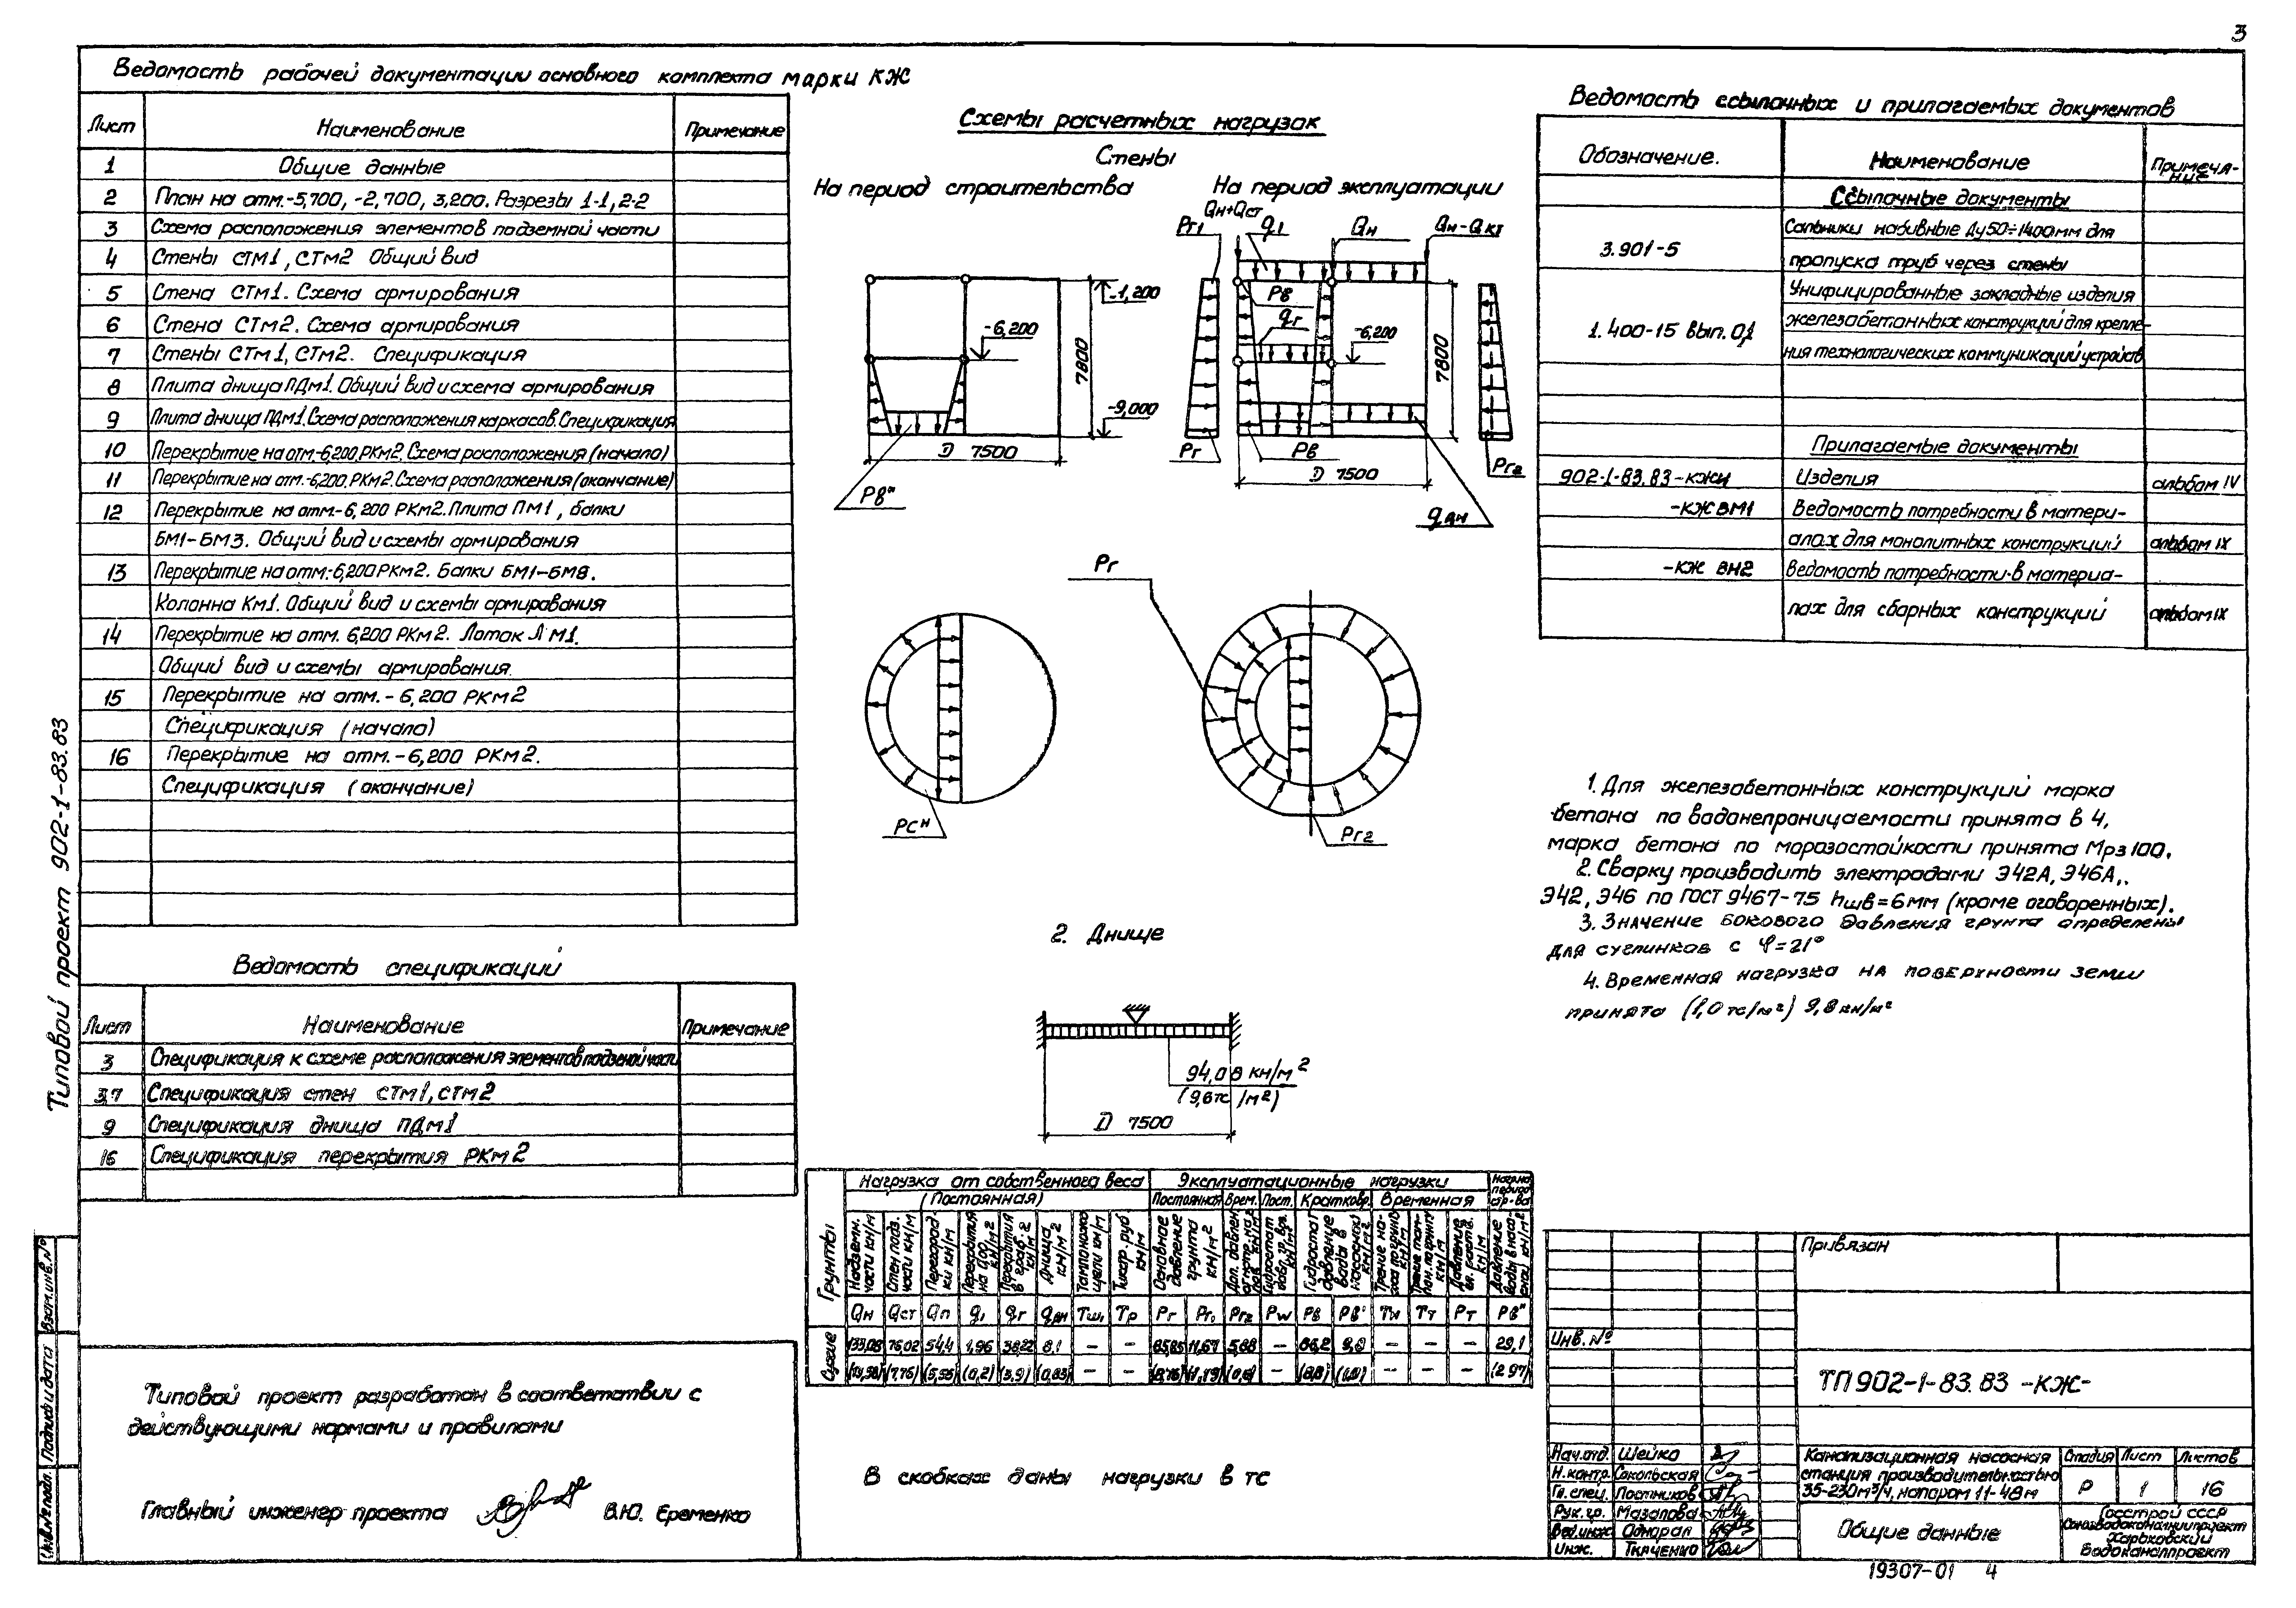 3
Ведомость рабочей документации основного комплекта марки КЖ
Лист Наименование Примечание
1 Общие данные
2 План на отм.-5,700, -2,700, 3,200. Разрезы 1-1, 2-2
3 Схема расположения элементов подземной части
4 Стены СТм1, СТм2 Общий вид
5 Стена СТм1. Схема армирования
6 Стена СТм2. Схема армирования
7 Стены СТм1, СТм2. Спецификация
8 Плита днища ПДм1. Общий вид и схема армирования
9 Плита днища ПДм1. Схема расположения каркасов. Спецификация
10 Перекрытие на отм.-6,200, РКм2. Схема расположения (начало)
11 Перекрытие на отм. -6,200, РКм2. Схема расположения (окончание)
12 Перекрытие на отм.-6,200 РКм2. Плита ПМ1, балки
БМ1-БМ3. Общий вид и схемы армирования
13 Перекрытие на отм.-6,200 РКм2. Балки БМ1-БМ8.
Колонна Км1. Общий вид и схемы армирования
14 Перекрытие на отм. 6,200 РКм2. Лоток ЛМ1.
Общий вид и схемы армирования.
15 Перекрытие на отм.-6,200 РКм2
Спецификация (начало)
16 Перекрытие на отм.-6,200 РКм2.
Спецификация (окончание)
Ведомость спецификаций
Лист Наименование Примечание
3 Спецификация к схеме расположения элементов подземной части
3,7 Спецификация стен СТм1, СТм2
9 Спецификация днища ПДм1
16 Спецификация перекрытия РКм2
Типовой проект разработан в соответствии с
действующими нормами и правилами
Главный инженер проекта В.Ю. Еременко
Типовой проект 902-1-83.83
Взам.инв.№
Подпись и дата
Инв.№ подл.
Схемы расчетных нагрузок
Стены
На период строительства
На период эксплуатации
-1,200
-6,200
-9,000
7800
D 7500
Рв"
Qн+Qст
Рг1 q1 Qн Qн-Qкт
Рв
qг
-6,200
7800
Рг Рв
D 7500
Рг2
qдн
Рг
Рсн
Рг2
2. Днище
94,08 кн/м2
(9,6тс/м2)
D 7500
Грунты
Нагрузка от собственного веса
(Постоянная)
Эксплуатационные нагрузки
Постоянная Врем. Пост. Кратковр. Временная
Надземн. части кн/м
Стен подз. части кн/м
Перегородки кн/м
Днища кн/м2
Основное давление грунта кн/м2
Qн Qст Qп q1 qг qдн Тш1 Тр Рг Рг1 Рг2 Рw Рв Рв' Тн Тт Рт Рв"
Сухие
133,08 76,02 54,4 1,96 38,22 8.1 — — 85,85 11,67 5,88 — 86,2 9,8 — — — 29,1
(13,58) (7,76) (5,55) (0,2) (3,9) (0,83) — — (8,76) (1,19) (0,6) — (8,8) (1,0) — — — (2 97)
В скобках даны нагрузки в тс
Ведомость ссылочных и прилагаемых документов
Обозначение. Наименование Примечание
Ссылочные документы
3.901-5
Сальники набивные Ду50÷1400мм для
пропуска труб через стены
1.400-15 вып. 0,1
Унифицированные закладные изделия
железобетонных конструкций для крепле-
ния технологических коммуникаций устройств
Прилагаемые документы
902-1-83.83-КЖИ Изделия альбом IV
-КЖ ВМ1 Ведомость потребности в матери-
алах для монолитных конструкций альбом IX
-КЖ ВМ2 Ведомость потребности в материа-
лах для сборных конструкций альбом IX
1. Для железобетонных конструкций марка
бетона по водонепроницаемости принята В 4,
марка бетона по морозостойкости принята Мрз 100.
2. Сварку производить электродами Э42А, Э46А,.
Э42, Э46 по ГОСТ 9467-75 hшв=6мм (кроме оговоренных).
3. Значение бокового давления грунта определены
для суглинков с φ=21°
4. Временная нагрузка на поверхности земли
принята (1,0 тс/м2) 9,8 кн/м2
Привязан
Инв.№
ТП 902-1-83.83 -КЖ-
Нач.отд. Шейко
Н.контр. Сокольская
Гл.спец. Постников
Рук.гр. Мазалова
Вед.инж Однорал
Инж. Ткаченко
Канализационная насосная
станция производительностью
35-230м³/ч, напором 11-48м
Стадия Лист Листов
Р 1 16
Общие данные
Госстрой СССР
Союзводоканалниипроект
Харьковский
Водоканалпроект
19307-01 4